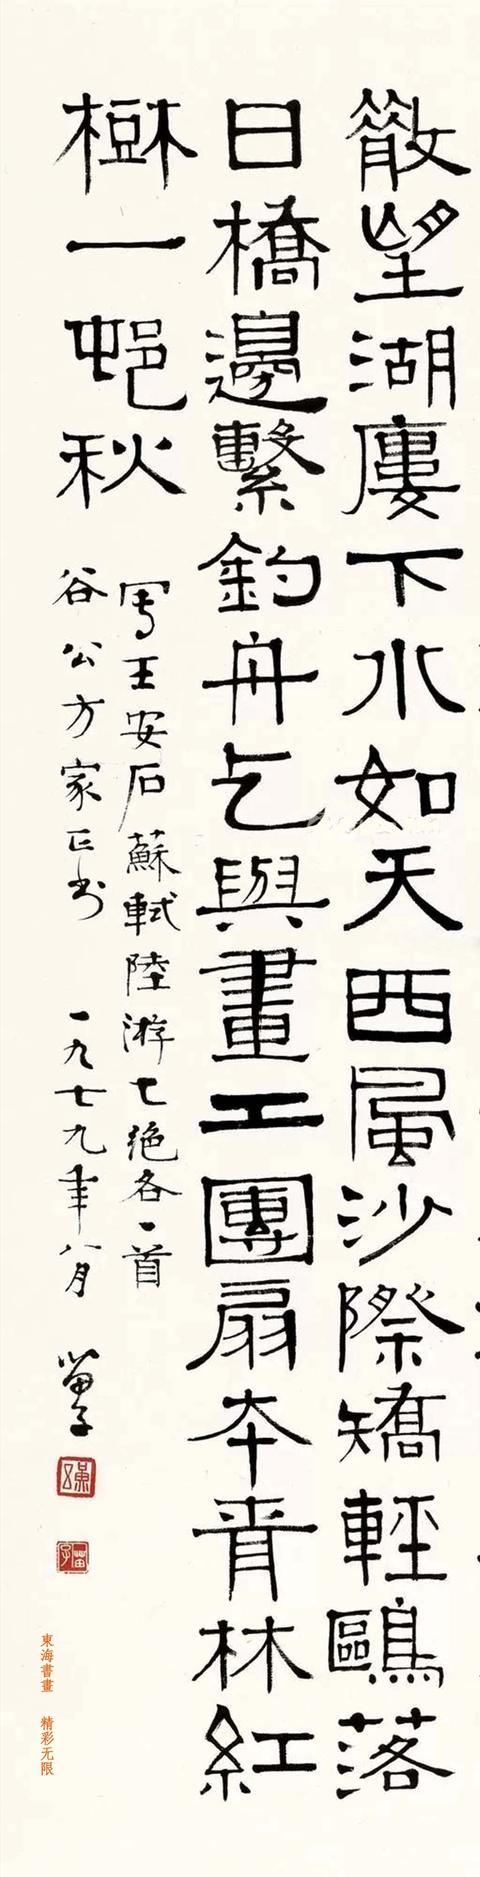 散望湖廔下水如天西風沙際矯輕鷗落
日橋邊繫釣舟乞與畫工團扇本青林紅
樹一邨秋
寫王安石蘇軾陸游七絕各一首
谷公方家正书 一九七九年八月
東海書畫 精彩无限